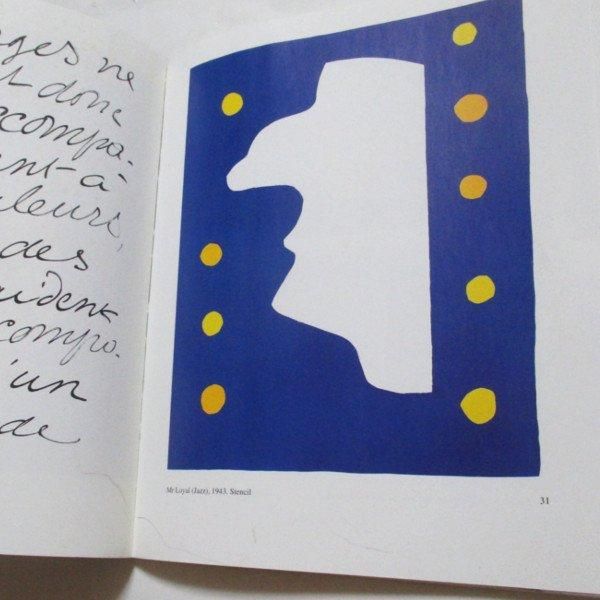 ages ne
t donc
ccompa-
ent à
leurs,
des
ident
compo.
'un
de
Mr Loyal (Jazz), 1943. Stencil
31